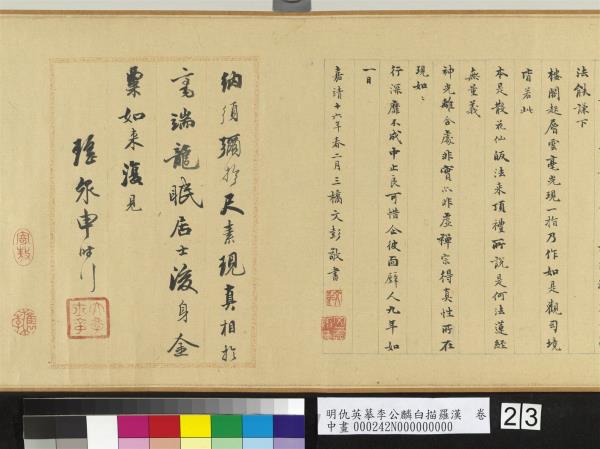 樓閣起層雲毫光現一指乃作如是觀司境
皆若此
本是散花仙皈法來頂禮所說是何法蓮經
無量義
神光離合處非實亦非虛禪宗得真性所在
現如〻
行深靡不成中止良可惜令彼面壁人九年如
一日
嘉靖十六年春二月三橋文彭敬書
納須彌於尺素現真相於
毫端龍眠居士後身金
粟如來復見
瑤泉申時行
明仇英摹李公麟白描羅漢 卷
中畫000242N000000000
23